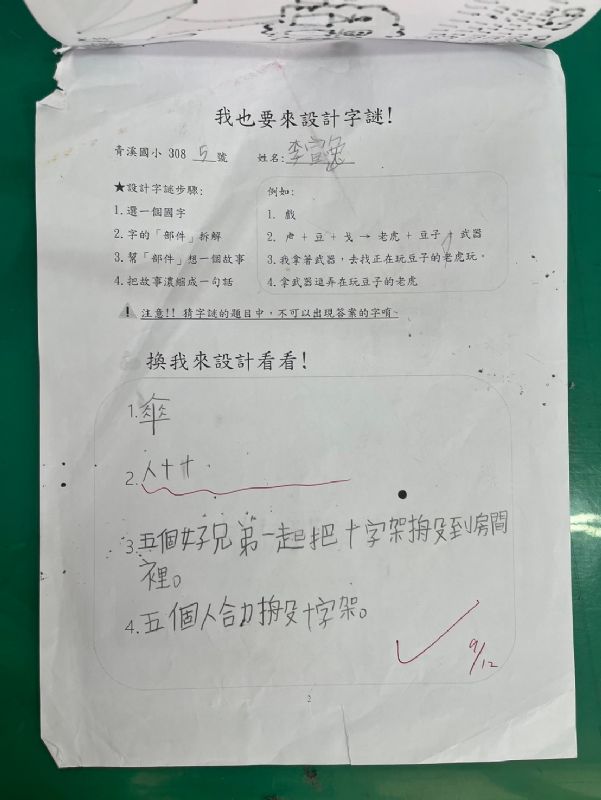 我也要來設計字謎!
青溪國小 308 5 號 姓名:李
★設計字謎步驟:
1.選一個國字
2.字的「部件」拆解
3.幫「部件」想一個故事
4.把故事濃縮成一句話
例如:
1. 戲
2. 虍 + 豆 + 戈 → 老虎 + 豆子 + 武器
3.我拿著武器,去找正在玩豆子的老虎玩。
4.拿武器逗弄在玩豆子的老虎
! 注意!! 猜字謎的題目中,不可以出現答案的字唷~
換我來設計看看!
1.傘
2.人十十
3.五個好兄弟一起把十字架搬到房間
裡。
4.五個人合力搬十字架。
9/12
2